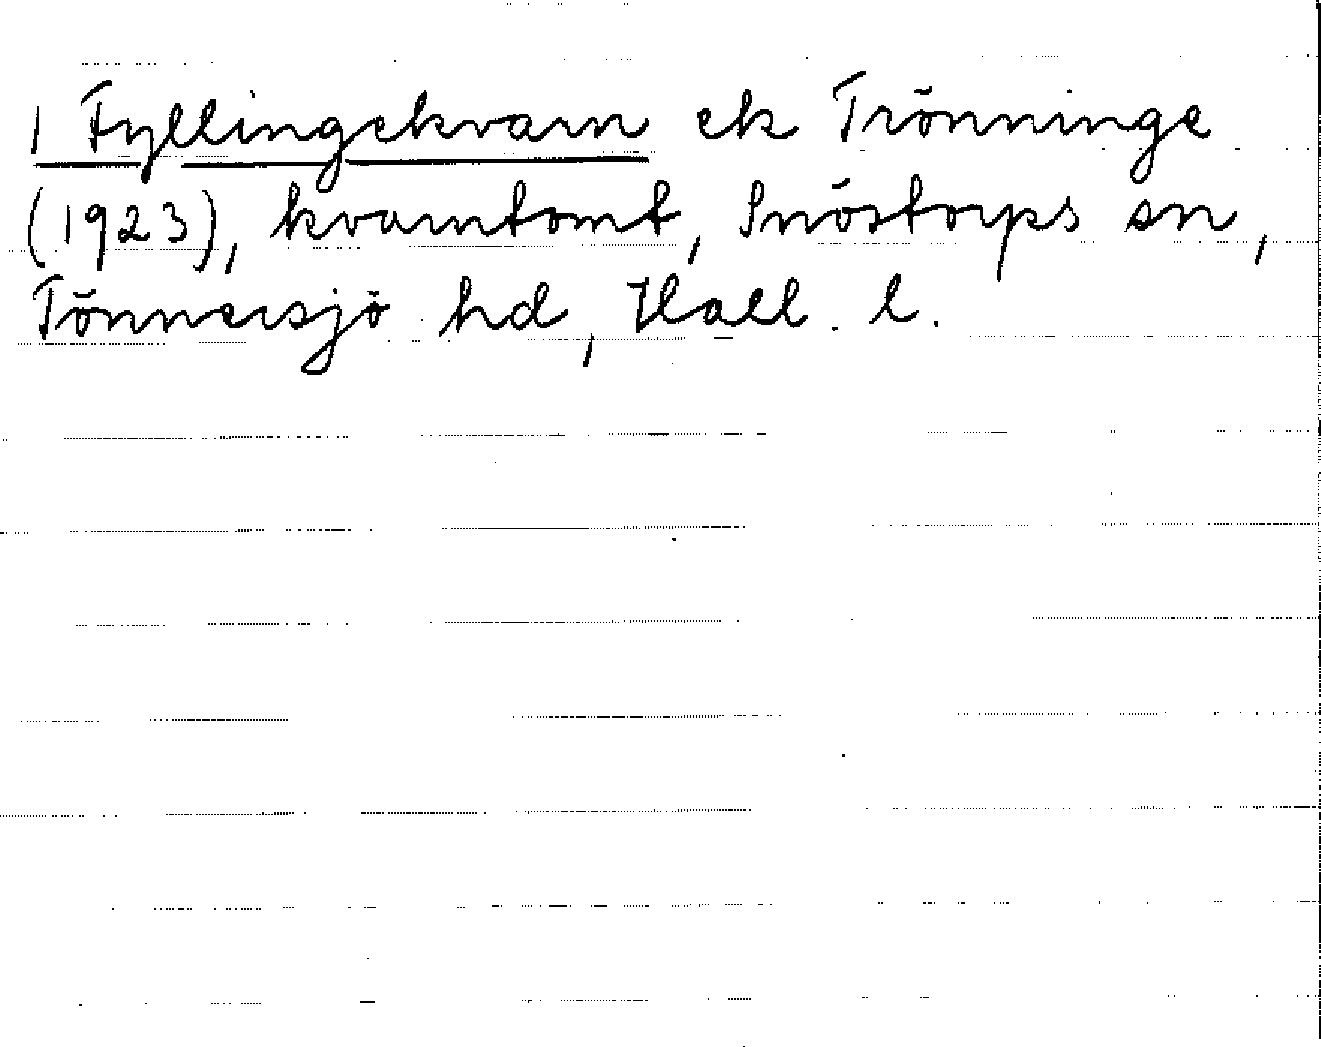 1 Fyllingekvarn ek Trönninge
(1923), kvarntomt, Snöstorps sn,
Tönnersjö hd, Hall. l.